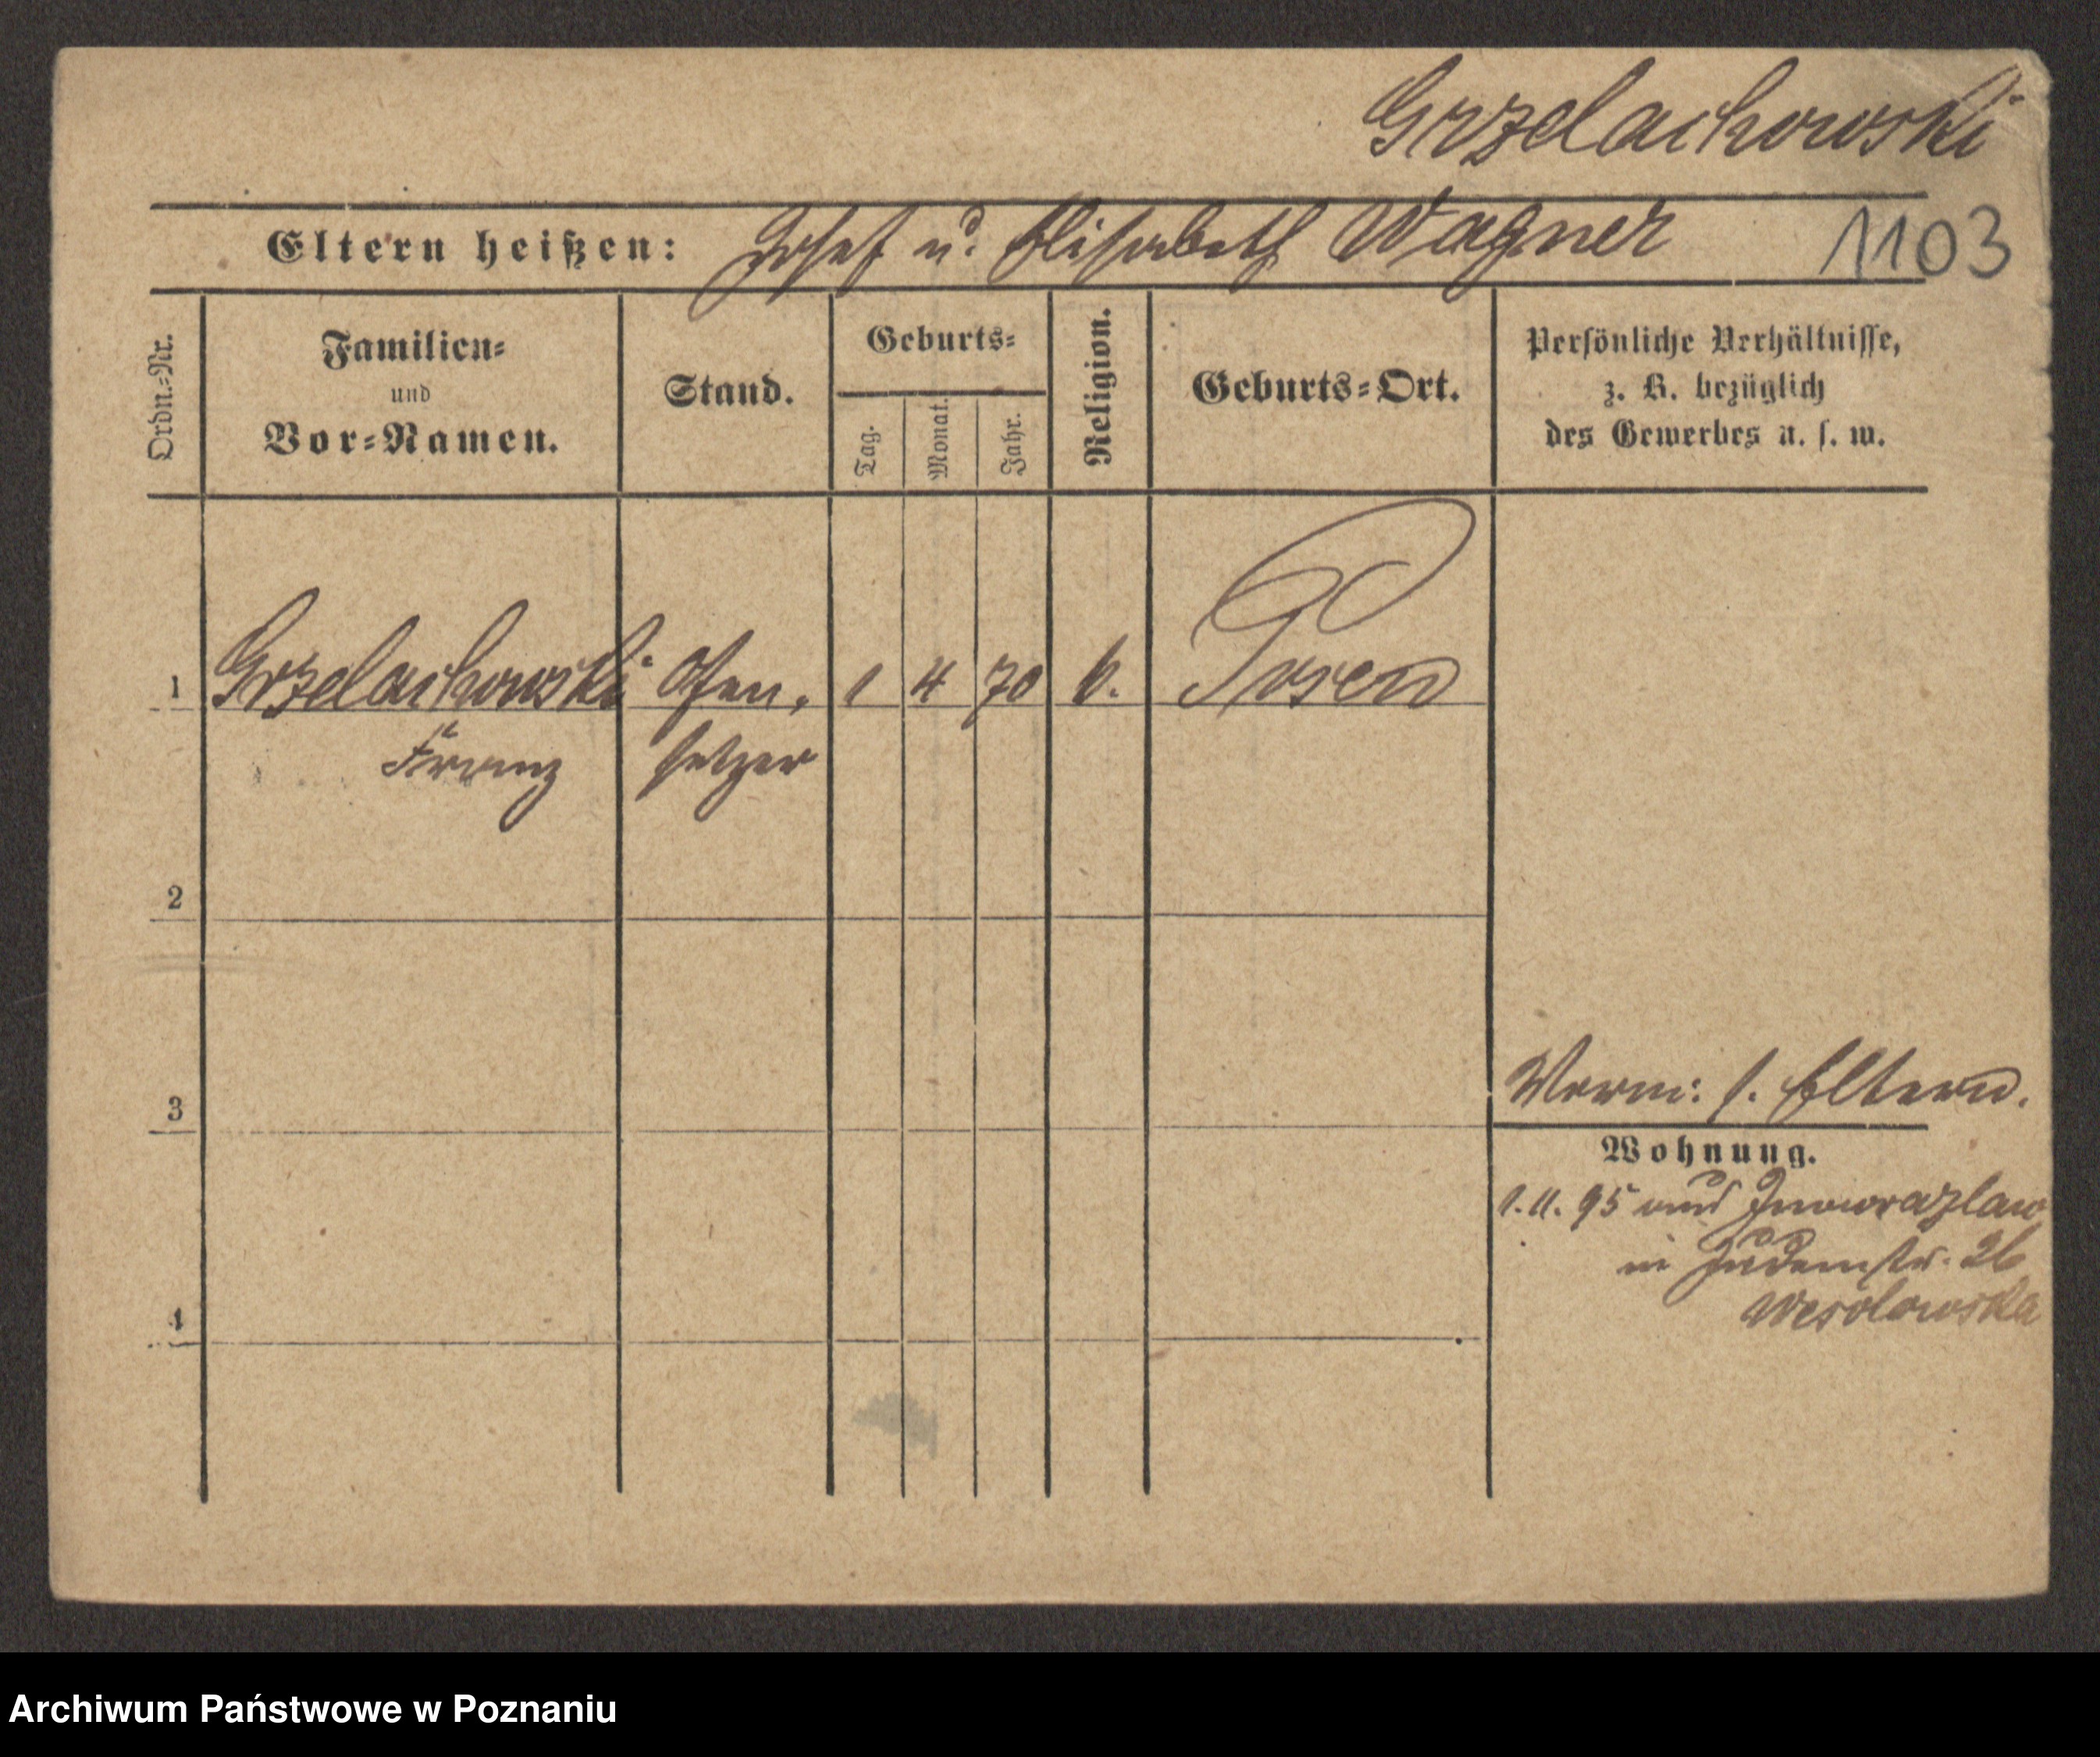 Grzelachowski
Eltern heißen: Josef u. Elisabeth Wagner
1103
Ordn.=Nr.
Familien=
und
Vor=Namen.
Stand.
Geburts=
Tag.
Monat.
Jahr.
Religion.
Geburts=Ort.
Persönliche Verhältnisse,
z. B. bezüglich
des Gewerbes u. s. w.
1 Grzelachowski Ofen, 1 4 70 k. Posen
Franz setzer
2
3
Verm: s. Eltern.
Wohnung.
1.11.95 aus Inowrazlaw
in Judenstr. 26
Wesolowska
4
Archiwum Państwowe w Poznaniu